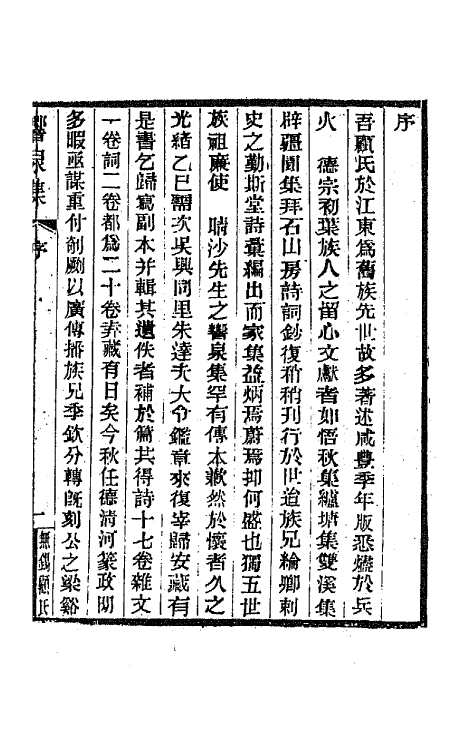 序
吾顧氏於江東爲舊族先世故多著述咸豐季年版悉燬於兵
火　德宗初葉族人之留心文獻者如悟秋集纑塘集雙溪集
辟疆園集拜石山房詩詞鈔復稍稍刊行於世迨族兄綸卿刺
史之勤斯堂詩彙編出而家集益炳焉蔚焉抑何盛也獨五世
族祖廉使　晴沙先生之響泉集罕有傳本歉然於懷者久之
光緒乙巳需次吳興同里朱達夫大令鑑章來復宰歸安藏有
是書乞歸寫副本并輯其遺佚者補於篇共得詩十七卷雜文
一卷詞二卷都爲二十卷弆藏有日矣今秋任德清河篆政閒
多暇亟謀重付剞劂以廣傳播族兄季欽分轉旣刻公之梁谿
響泉集　序　一　無錫顧氏